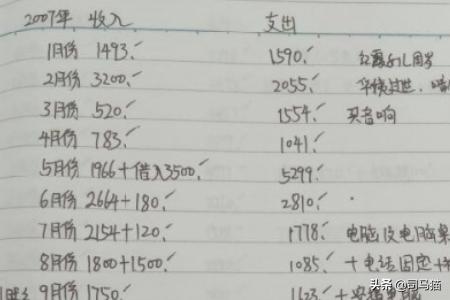 2007年 收入 支出
1月份 1493.✓ 1590.✓
2月份 3200.✓ 2055.✓
3月份 520.✓ 1554.✓ 买音响
4月份 783.✓ 1041.✓
5月份 1966+借入3500.✓ 5299.✓
6月份 2664+180.✓ 2810.✓
7月份 2154+120.✓ 1778.✓ 电脑及电脑桌
8月份 1800+1500.✓ 1085.✓ +电话固定+
9月份 1750.✓ 1623.✓
头条 @司马猫